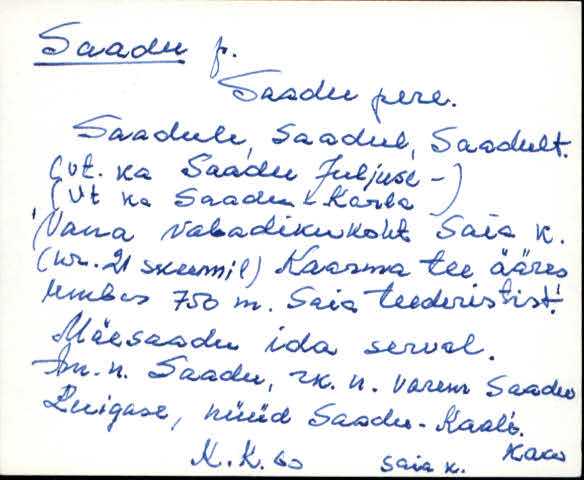 Saadu p.
Saadu pere.
Saadule, Saadul, Saadult.
(vt. ka Saadu Juljuse -)
(vt ka Saadu Karla -)
Vana vabadikukoht Saia k.
(nr. 21 skeemil) Kaarma tee ääres
umbes 750 m. Saia teeristist.
Mäesaadu ida serval.
Am. n. Saadu, rk. n. varem Saadu
Puigase, nüüd Saadu-Kaali.
Kaar
N. K. 60 Saia k.